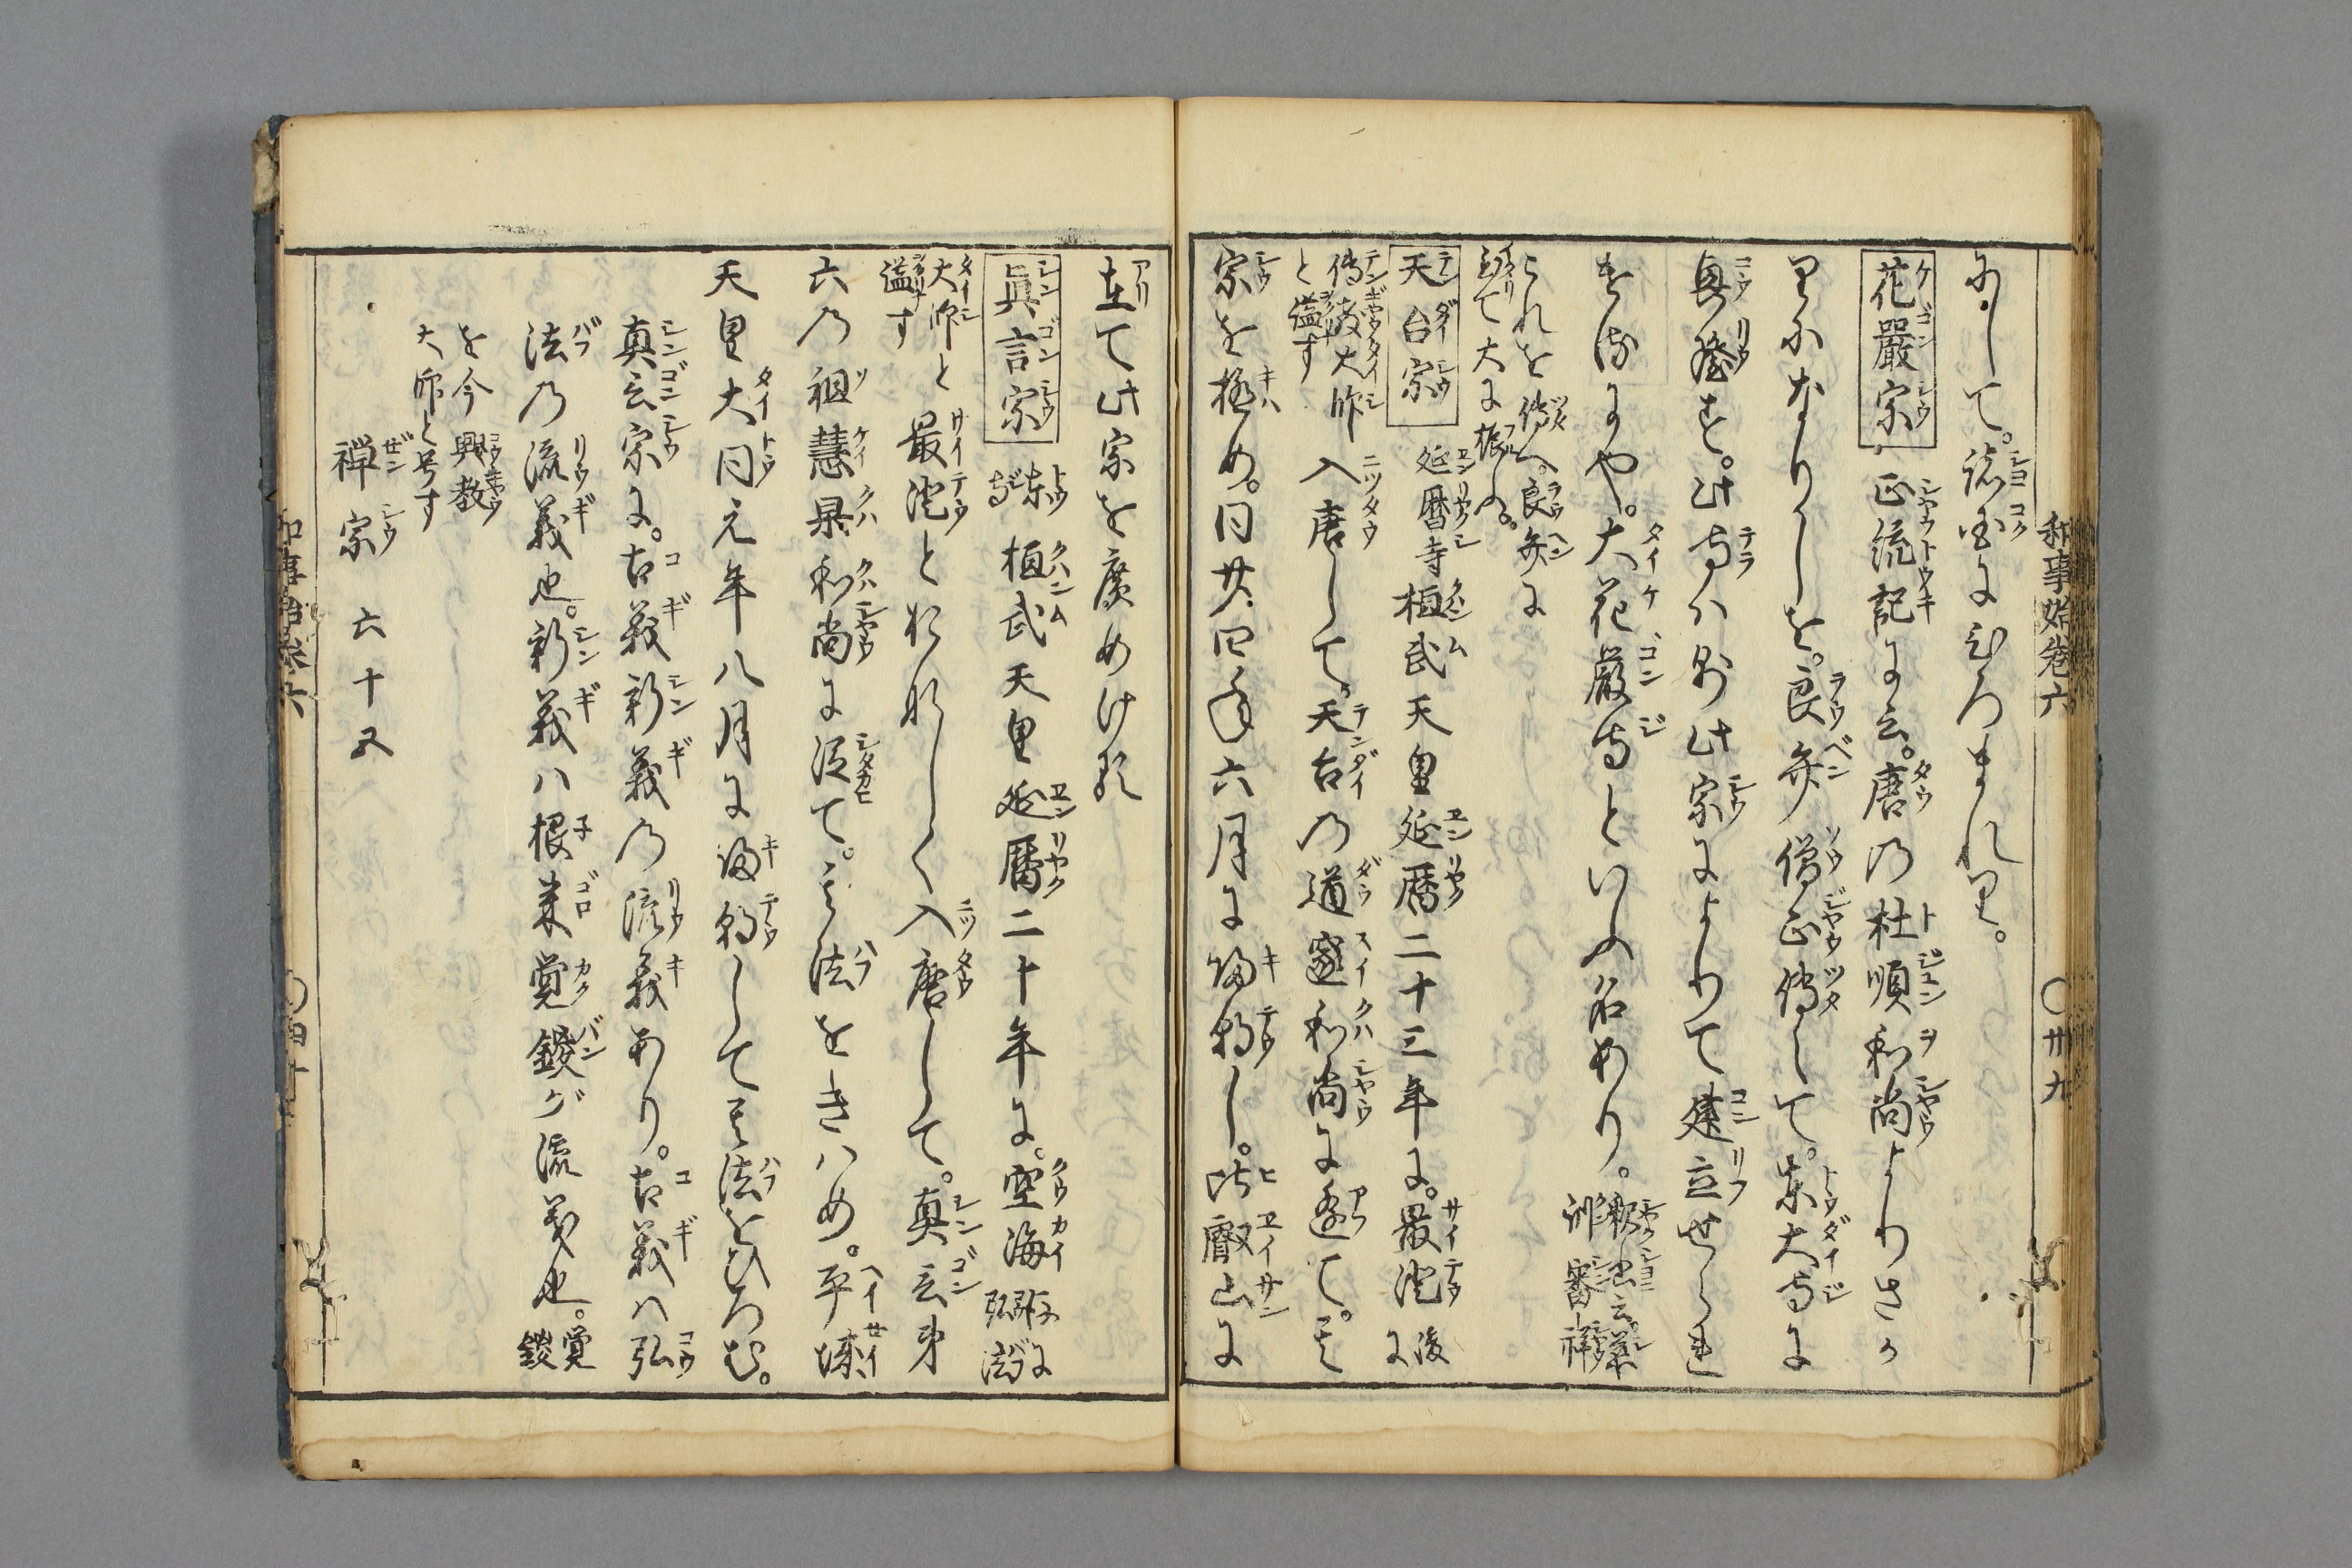 和事始卷六 〇卅九
にして。諸国にひろまれり。
花嚴宗 正統記に云。唐の杜順和尚よりさか
りになりしを。良弁僧正傳へて。東大寺に
興隆す。此寺ハ則此宗によりて建立せられ
けるにや。大花嚴寺といふ名あり。釈書云慈
訓審祥
これを傳へ。良弁に
到て大に振ふ。
天台宗 延暦寺 桓武天皇延暦二十三年に。最澄後に
傳教大師
と謚す
入唐して。天台の道邃和尚に逢て。其
宗を極め。同廿四年六月に帰朝し。比叡山に
在て此宗を廣めけり
眞言宗 東寺 桓武天皇延暦二十年に。空海後に弘法
大師と
謚す
最澄とおなじく入唐して。真言第
六の祖慧果和尚に従て。其法をきハめ。平城
天皇大同元年八月に帰朝して其法をひろむ。
真言宗に。古義新義の流義あり。古義ハ弘
法の流義也。新義ハ根来覚鑁が流義也。覚鑁
を今興教
大師と号す
禅宗 六十五
和事始卷六 〇四十